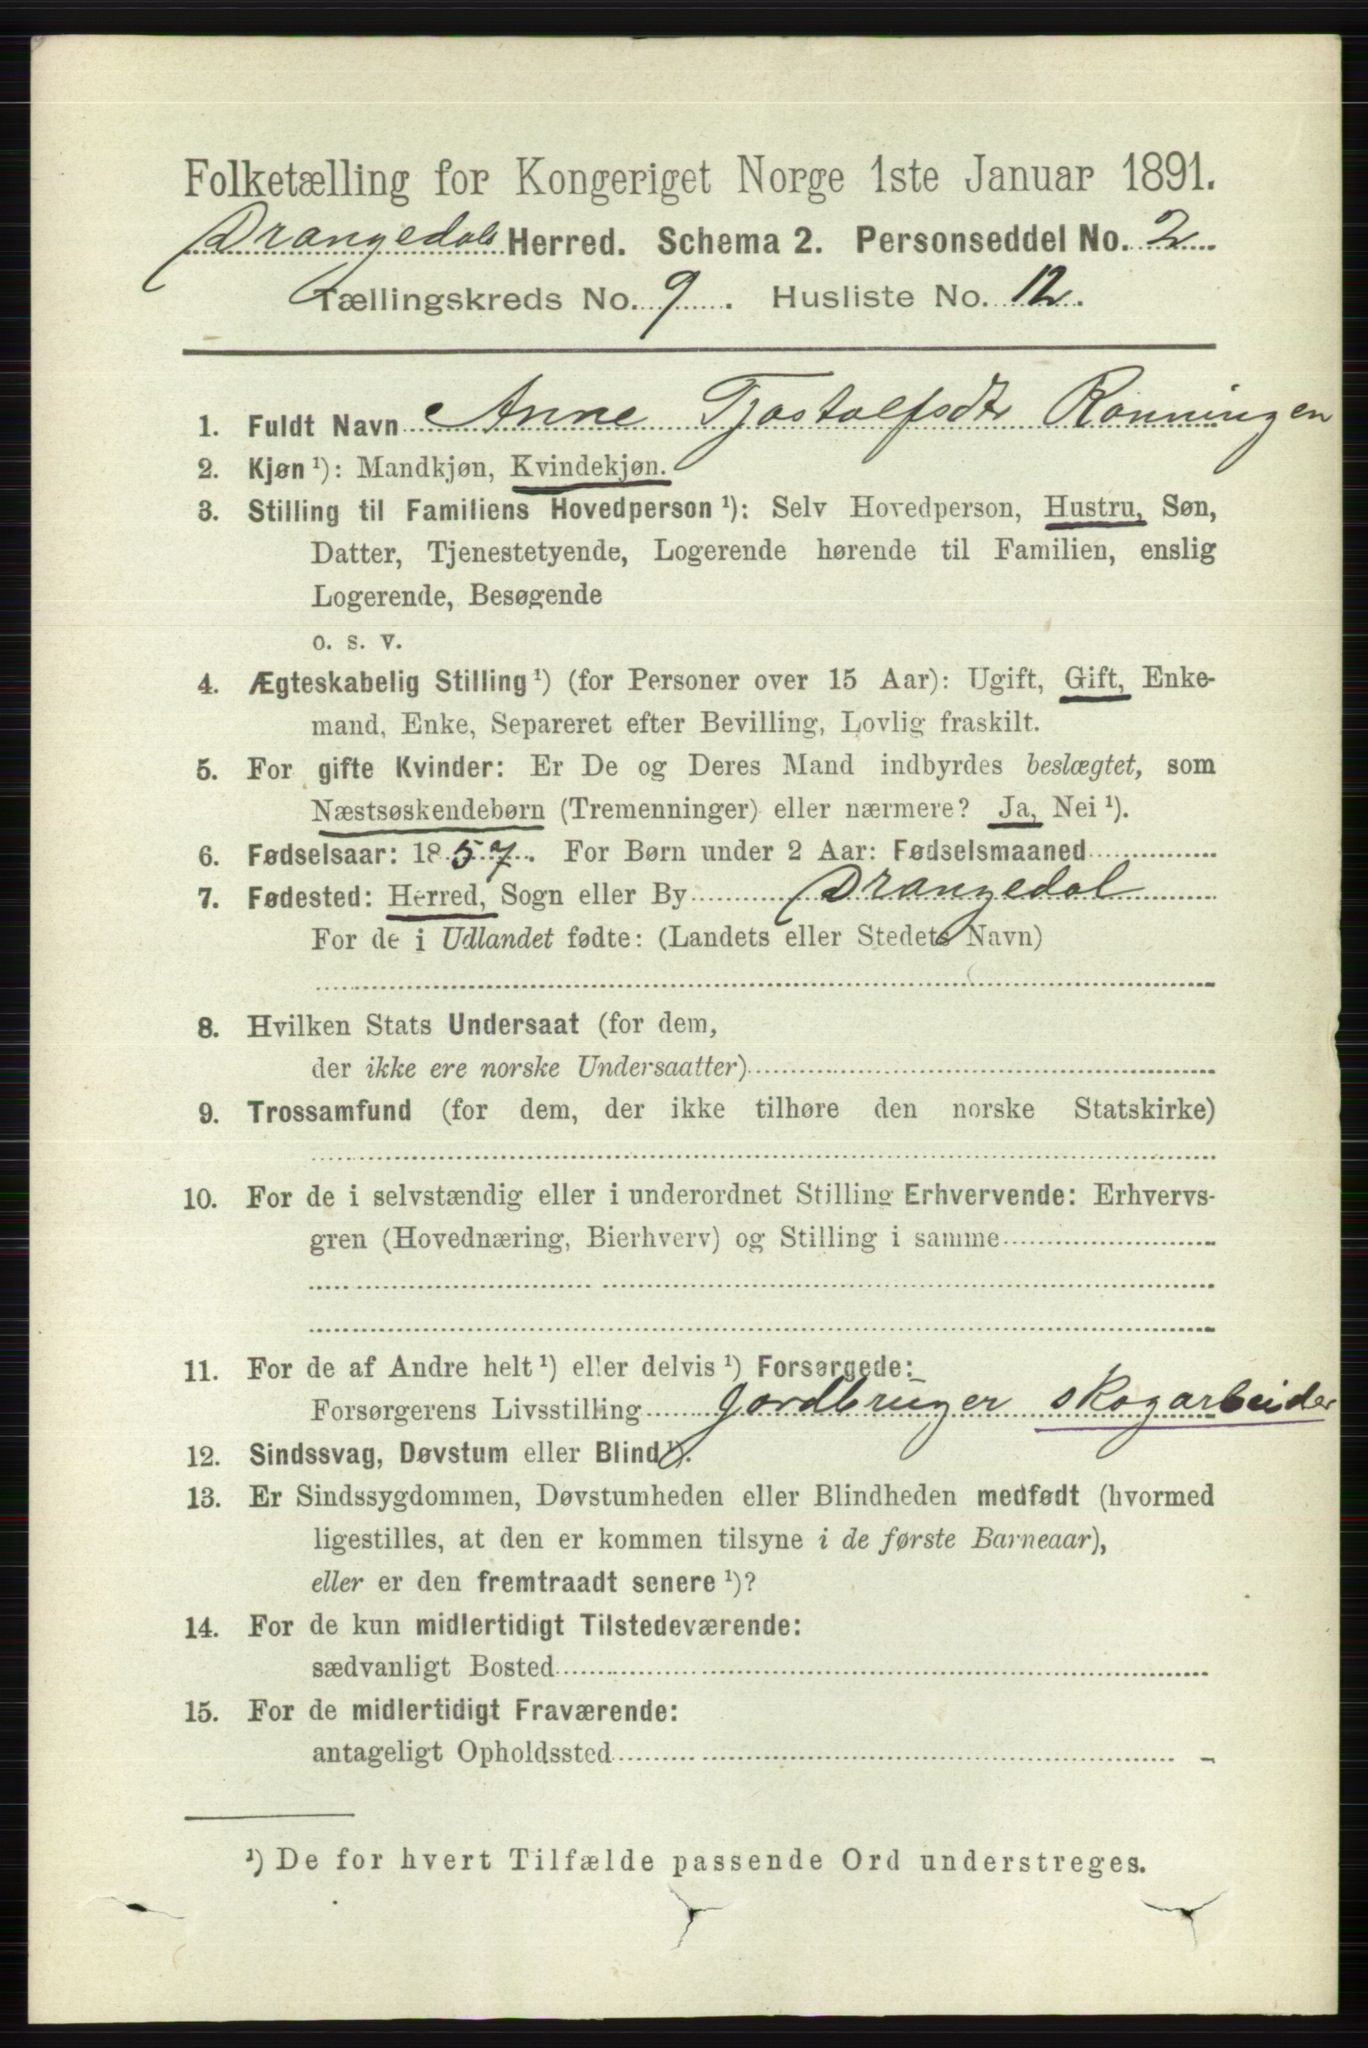 Folketælling for Kongeriget Norge 1ste Januar 1891.
Drangedals Herred. Schema 2. Personseddel No. 2
Tællingskreds No. 9. Husliste No. 12.
1. Fuldt Navn Anne Tjostolfsdtr Rønningen
2. Kjøn ¹): Mandkjøn, Kvindekjøn.
3. Stilling til Familiens Hovedperson ¹): Selv Hovedperson, Hustru, Søn,
Datter, Tjenestetyende, Logerende hørende til Familien, enslig
Logerende, Besøgende
o. s. v.
4. Ægteskabelig Stilling ¹) (for Personer over 15 Aar): Ugift, Gift, Enke-
mand, Enke, Separeret efter Bevilling, Lovlig fraskilt.
5. For gifte Kvinder: Er De og Deres Mand indbyrdes beslægtet, som
Næstsøskendebørn (Tremenninger) eller nærmere? Ja, Nei ¹).
6. Fødselsaar: 1857. For Børn under 2 Aar: Fødselsmaaned
7. Fødested: Herred, Sogn eller By Drangedal
For de i Udlandet fødte: (Landets eller Stedets Navn)
8. Hvilken Stats Undersaat (for dem,
der ikke ere norske Undersaatter)
9. Trossamfund (for dem, der ikke tilhøre den norske Statskirke)
10. For de i selvstændig eller i underordnet Stilling Erhvervende: Erhvervs-
gren (Hovednæring, Bierhverv) og Stilling i samme
11. For de af Andre helt ¹) eller delvis ¹) Forsørgede:
Forsørgerens Livsstilling Jordbruger skogarbeider
12. Sindssvag, Døvstum eller Blind ¹).
13. Er Sindssygdommen, Døvstumheden eller Blindheden medfødt (hvormed
ligestilles, at den er kommen tilsyne i de første Barneaar),
eller er den fremtraadt senere ¹)?
14. For de kun midlertidigt Tilstedeværende:
sædvanligt Bosted
15. For de midlertidigt Fraværende:
antageligt Opholdssted
¹) De for hvert Tilfælde passende Ord understreges.